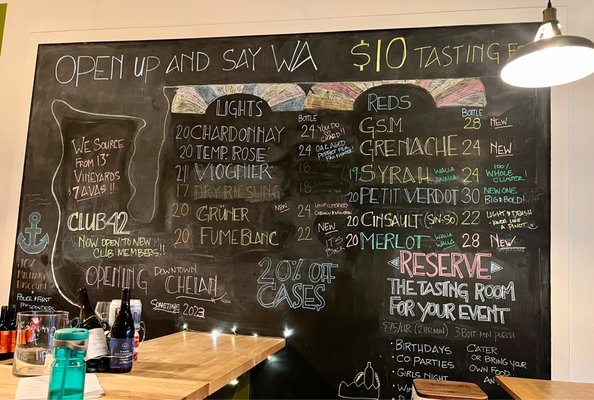 OPEN UP AND SAY WA
$10 TASTING
LIGHTS
BOTTLE
20 CHARDONNAY 24
20 TEMP. ROSE 24
OAK AGED
VIOGNIER
DRY RIESLING 18
20 GRÜNER 24
UNFILTERED
20 FUME BLANC 22
NEW
REDS
BOTTLE
G.S.M. 28 NEW
GRENACHE 24 NEW
19 SYRAH WALLA WALLA 24
100% WHOLE CLUSTER!
20 PETIT VERDOT 30
NEW ONE BIG & BOLD!
20 CINSAULT (SIN-SO) 22
LIGHT &
20 MERLOT WALLA WALLA 28 NEW
WE SOURCE
FROM 13
VINEYARDS
7 AVAS!!
CLUB42
NOW OPEN TO NEW
CLUB MEMBERS!!
10%
MILITARY
DISCOUNT
POLICE & FIRST
OPENING DOWNTOWN CHELAN
SOMETIME 2023
20% OFF
CASES
RESERVE
THE TASTING ROOM
FOR YOUR EVENT
$75/HR (2HR MIN) 3 BOTT MIN PURCH
• BIRTHDAYS
• CO PARTIES
• GIRLS NIGHT
CATER
OR BRING YOUR
OWN FOOD